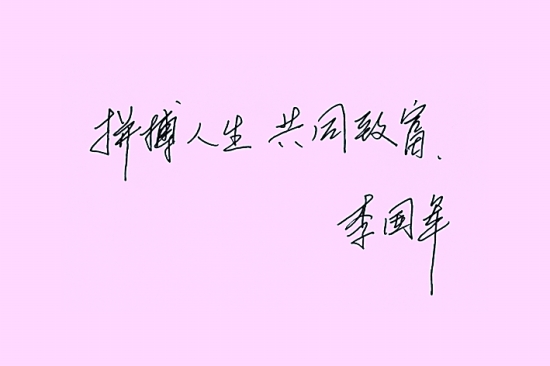 拼搏人生 共同致富.
李国军